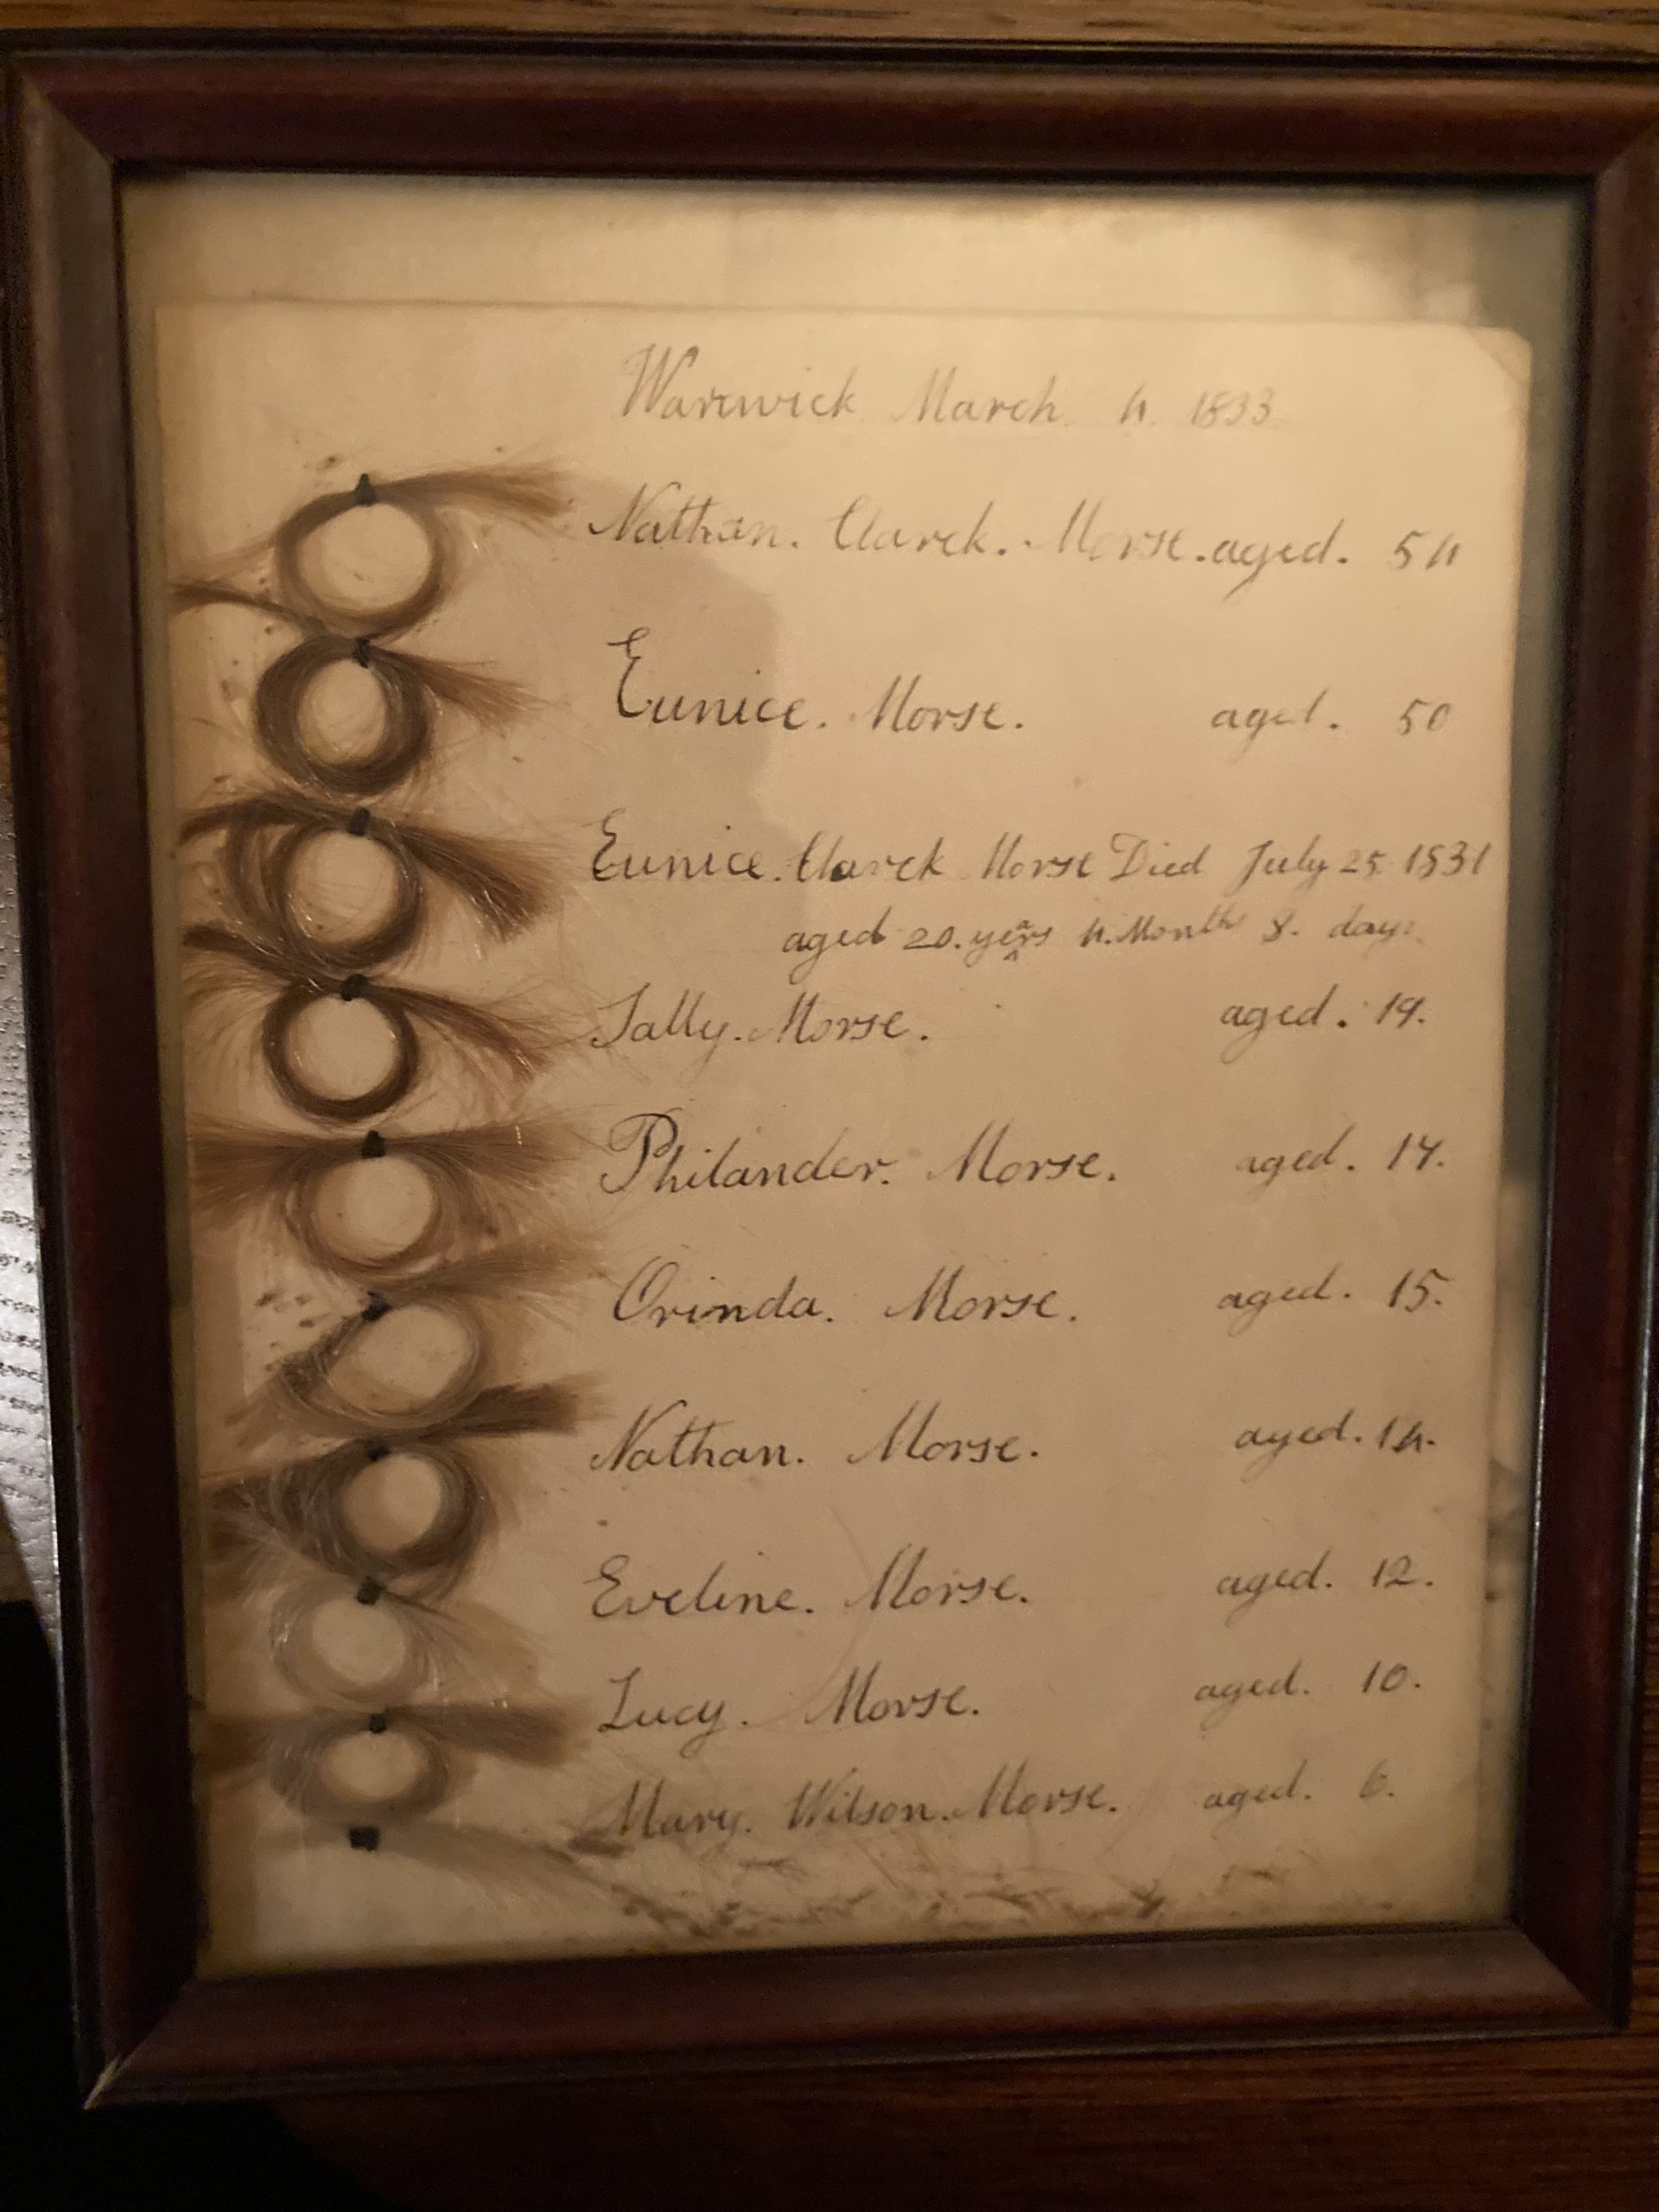 Warwick March 4. 1833.
Nathan. Clarck. Morse. aged. 54
Eunice. Morse. aged. 50
Eunice. Clarck Morse Died July 25 1831
aged 20. yers 4. Months 8. days.
Sally. Morse. aged. 19.
Philander. Morse. aged. 17.
Orinda. Morse. aged. 15.
Nathan. Morse. aged. 14.
Eveline. Morse. aged. 12.
Lucy. Morse. aged. 10.
Mary. Wilson. Morse. aged. 6.